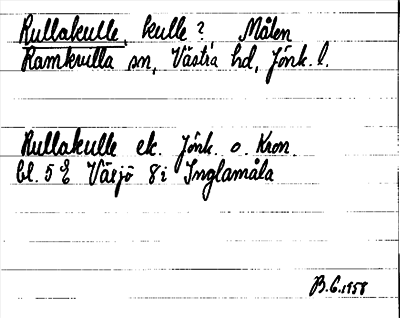 Rullakulle, kulle?, Målen
Ramkvilla sn, Västra hd, Jönk. l.
Rullakulle ek. Jönk. o. Kron.
bl. 5 E Växjö 8i Inglamåla
B.C. 1958